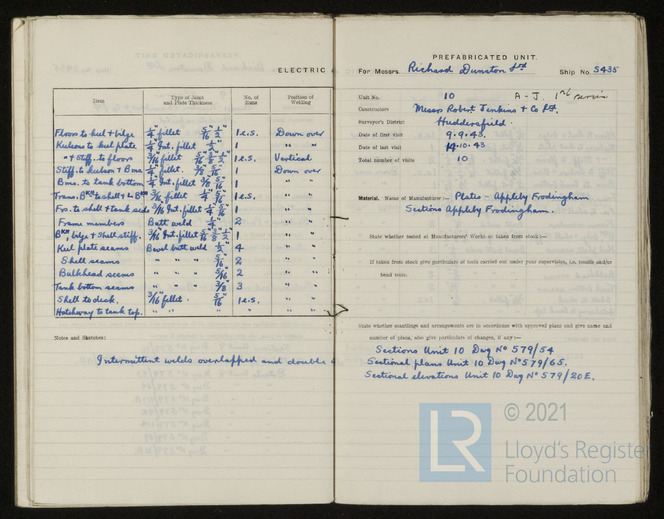 ELECTRIC
Item Type of Joint and Plate Thickness No. of Runs Position of Welding
Floors to keel & bilge 1/4" fillet 5/16" 1/2" 1 e.s. Down over
Keelsons to keel plate 1/4" Int. fillet 1/2" 1 " "
" & Stiff. to floors 3/16" fillet 5/16" 3/8" 1/2" 1 e.s. Vertical
Stiff. to keelson & Bms 1/4" fillet. 3/8" 5/16" 1 Down over
Bms. to tank bottom 1/4" Int. fillet 3/8" 5/16" 1 " "
Trans. BKH to shell & L BKH 3/16" fillet 1/4" 5/16" 1 e.s. " "
Frs. to shell & tank side 3/16" Int. fillet 1/4" 5/16" 1 " "
Frame members Butt weld 1/2" 2 " "
BKH bilge & shell stiff. 3/16" Int. fillet 5/16" 1/2" 1 " "
Keel plate seams Bevel butt weld 1/2" 4 " "
Shell seams " " " 5/16" 2 " "
Bulkhead seams " " " 5/16" 2 " "
Tank bottom seams " " " 3/8" 3 " "
Shell to deck. 3/16" fillet. 5/16" 1 e.s. " "
Hatchway to tank top. " " " " " "
Notes and Sketches:
Intermittent welds overlapped and double
PREFABRICATED UNIT.
For Messrs. Richard Dunston Ltd Ship No. 5435
Unit No. 10 A - J.
Constructors Messrs Robert Jenkins & Co Ltd.
Surveyor's District Huddersfield.
Date of first visit 9.9.43.
Date of last visit 14.10.43
Total number of visits 10
Material. Name of Manufacturer :— Plates - Appleby Frodingham
Sections Appleby Frodingham.
State whether tested at Manufacturers' Works or taken from stock :—
If taken from stock give particulars of tests carried out under your supervision, i.e. tensile and/or
bend tests.
State whether scantlings and arrangements are in accordance with approved plans and give name and
number of plans, also give particulars of changes, if any :—
Sections Unit 10 Dwg No 579/54
Sectional plans Unit 10 Dwg No 579/65.
Sectional elevations Unit 10 Dwg No 579/20E.
© 2021
LR
Lloyd's Register
Foundation